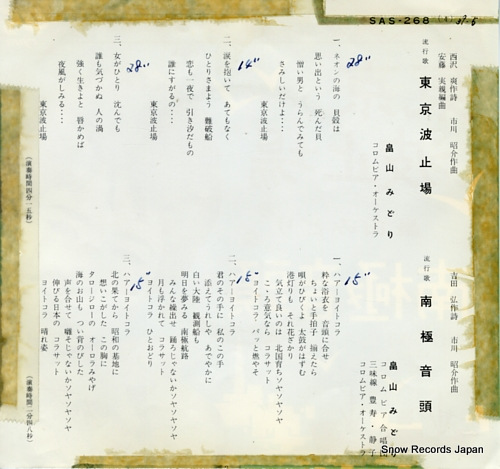 SAS-268 (1) 37-6
西沢 爽作詩 市川 昭介作曲
安藤 実親編曲
流行歌 東京波止場
畠山みどり
コロムビア・オーケストラ
28"
一、ネオンの海の 貝殻は
思い出という 死んだ貝
憎い男と うらんでみても
さみしいだけよ・・・
東京波止場
14"
二、涙を抱いて あてもなく
ひとりさまよう 難破船
恋も一夜で 引き汐だもの
誰にすがるの・・・
東京波止場
28"
三、女がひとり 沈んでも
誰も気づかぬ 人の渦
強く生きよと 唇かめば
夜風がしみる・・・
東京波止場
(演奏時間四分一五秒)
吉田 弘作詩 市川 昭介作曲
流行歌 南極音頭
畠山みどり
コロムビア合唱団
三味線 豊寿・静子
コロムビア・オーケストラ
15"
一、ハアーヨイトコラ
粋な浴衣を 音頭に合せ
ちょいと手拍子 揃えたら
唄がひびくよ 太鼓がはずむ
港灯りも それ花ざかり
気立て良いのは 北国育ちソヤソヤソヤ
こゝろ意気なら コラサット
ヨイトコラ パッと燃やそ
15"
二、ハアーヨイトコラ
君のその手に 私のこの手
添えてうれしや あでやかに
白い大陸 観測船も
明日を夢みる 南極航路
みんな繰出せ 踊ろじゃないかソヤソヤソヤ
月も浮かれて コラサット
ヨイトコラ ひとおどり
15"
三、ハアーヨイトコラ
北の果てから 昭和の基地に
想いこがした この胸に
タロージローの オーロラみやげ
海のお山も つい背のびした
声を合せて 囃そじゃないかソヤソヤソヤ
伸びる日本の コラサット
ヨイトコラ 晴れ姿
(演奏時間二分四八秒)
Snow Records Japan